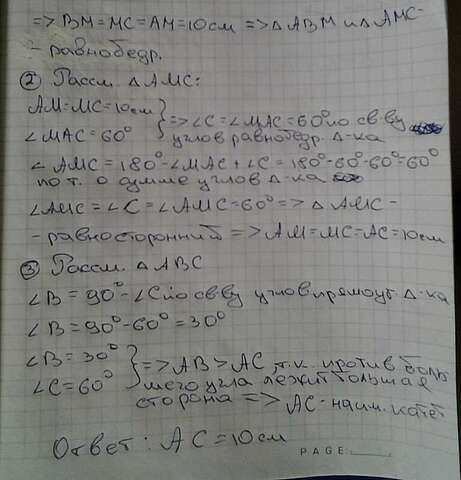 => BM=MC=AM=10см => △ABM и △AMC-
- равнобедр.
② Рассм. △AMC:
AM=MC=10см
∠MAC=60° } => ∠C=∠MAC=60° по св-ву
углов равнобедр. △-ка
∠AMC=180°-∠MAC+∠C=180°-60°-60°=60°
по т. о сумме углов △-ка
∠AMC=∠C=∠AMC=60° => △AMC-
- равносторонний => AM=MC=AC=10см
③ Рассм. △ABC
∠B=90°-∠C по св-ву углов прямоуг. △-ка
∠B=90°-60°=30°
∠B=30°
∠C=60° } => AB>AC, т.к. против боль
шего угла лежит большая
сторона => AC-наим. катет
Ответ: AC=10см
PAGE: